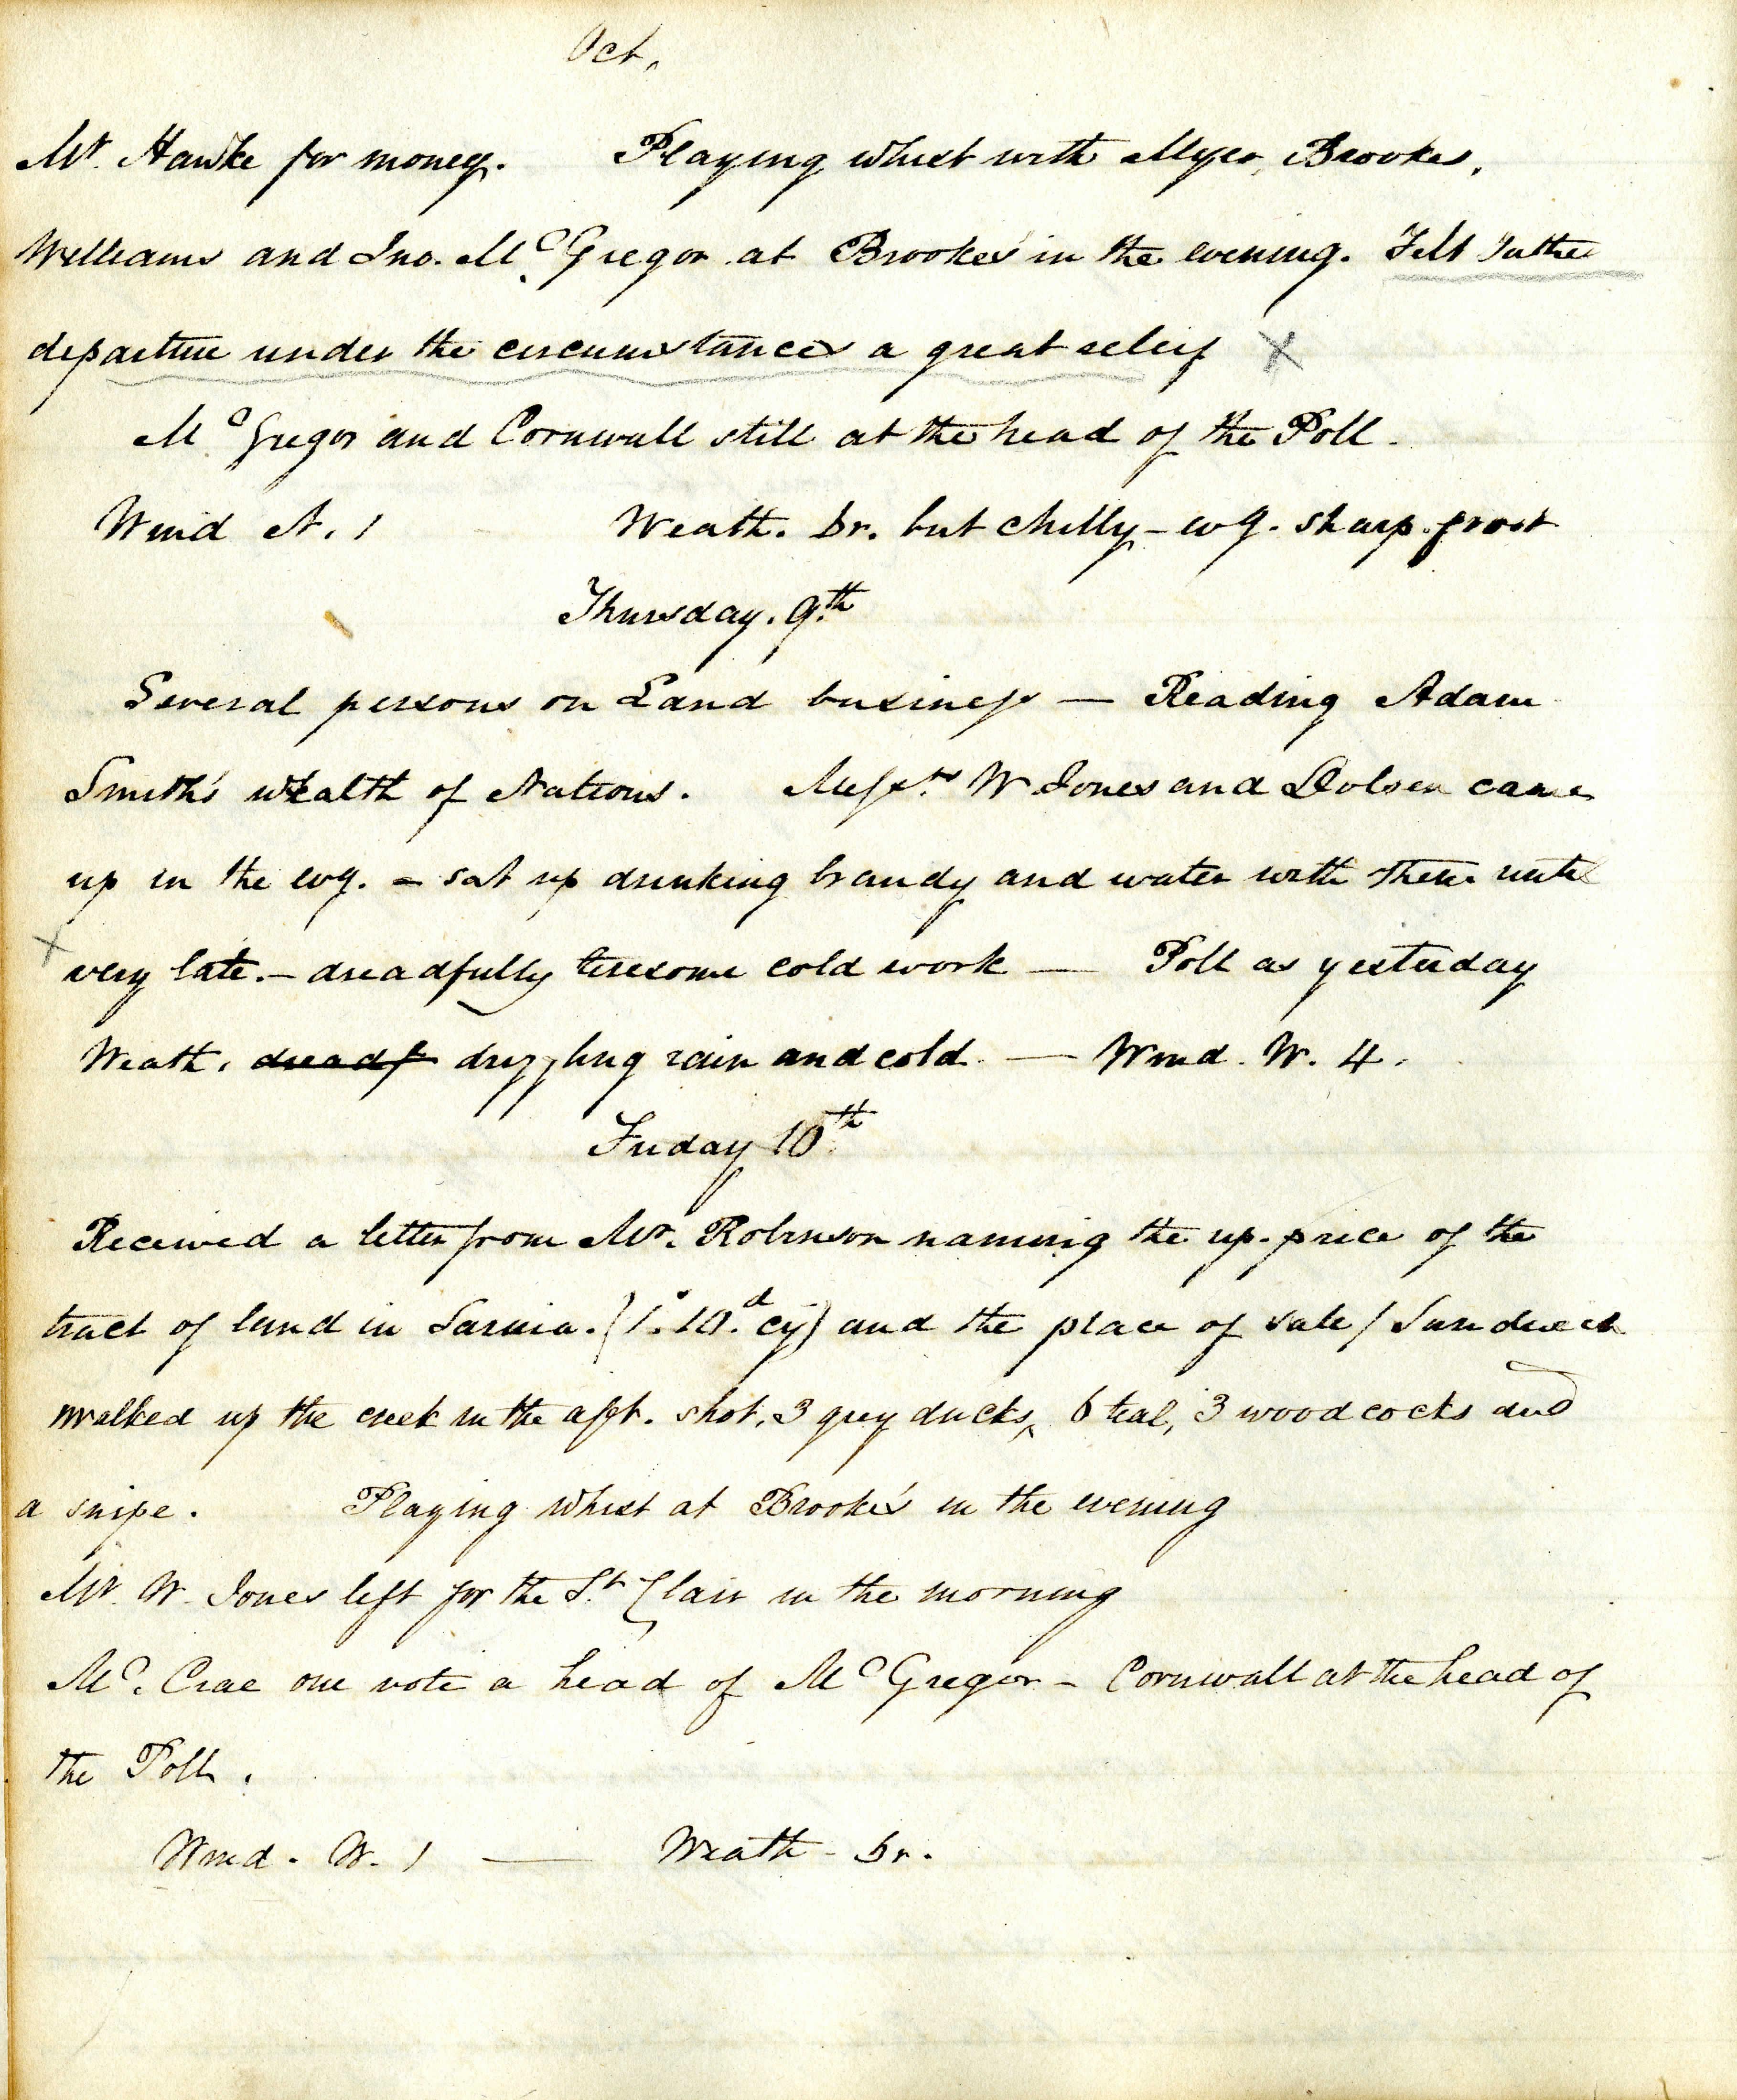 Oct.
Mr. Hawke for money. Playing whist with Myers, Brookes,
Williams and Jno. McGregor at Brookes' in the evening. Felt
departure under the circumstances a great releif X
McGregor and Cornwall still at the head of the Poll.
Wind N. 1 Weath. br. but chilly - evg. sharp frost
Thursday. 9th
Several persons on Land business — Reading Adam
Smith's Wealth of Nations. Messrs W Jones and Dolsen came
up in the evg. - sat up drinking brandy and water with them until
X very late. - dreadfully tiresome cold work — Poll as yesterday
Weath. dreadf drizzling rain and cold — Wind. W. 4.
Friday 10th
Received a letter from Mr. Robinson naming the up. price of the
tract of land in Sarnia. (1s. 10.d cy) and the place of sale /
walked up the creek in the aft. shot, 3 grey ducks, 6 teal, 3 woodcocks and
a snipe. Playing whist at Brooke's in the evening
Mr. W. Jones left for the St. Clair in the morning
Mc. Crae one vote a head of McGregor - Cornwall at the head of
the Poll.
Wind. W. 1 — Weath - br.